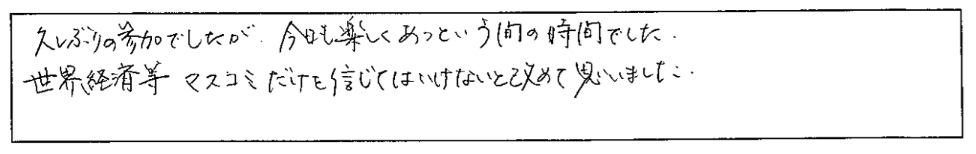 久しぶりの参加でしたが、今日も楽しくあっという間の時間でした.
世界経済等 マスコミだけを信じてはいけないと改めて思いました.